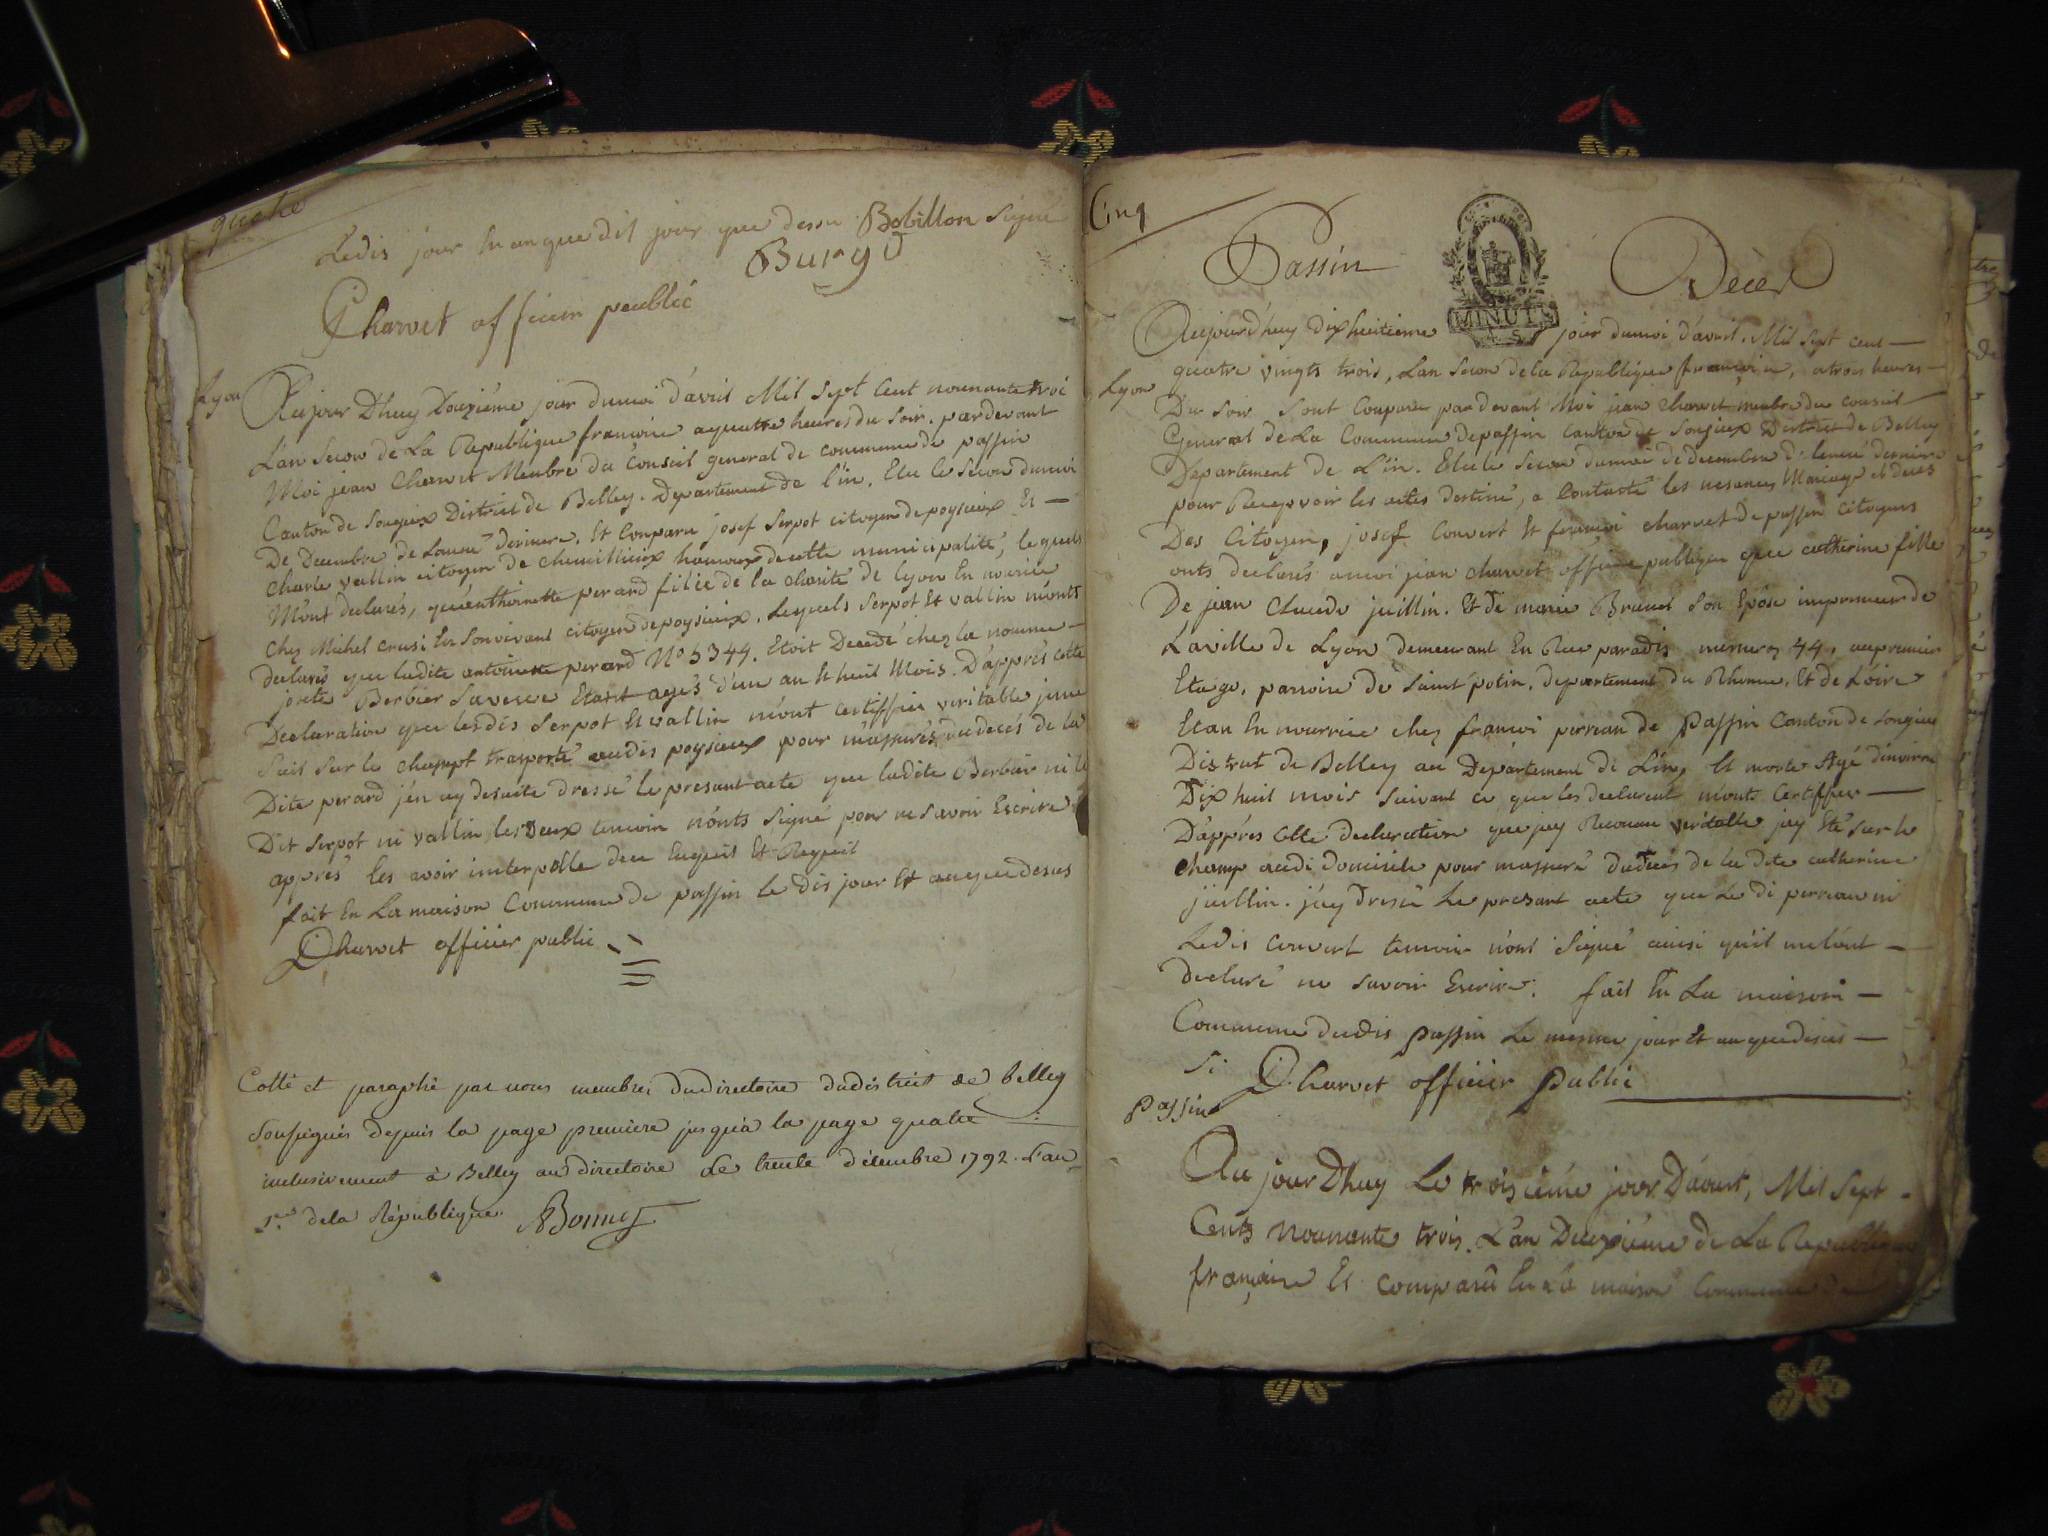 quatre
Ledis jour en an que dit jour que dessu Bobillon signé
Burgd
Charvet officier peublic
Lyon
Aujour Dhuy Douziéme jour dumoi d'avril Mil sept Cent nonnante troi
L'an Secon de La Republique francoise a quattre heures du Soir. pardevant
Moi jean Charvet Menbre du Conseil general de commune de passin
Canton de Songieux District de Belley. Departement de l'in. Elu le Secon dumoi
De Decembre de Lannée derniere. Et Conparu josef Serpot citoyen de poysieux Et
Charle vallin citoyen de chemillieux hameaux de cette municipalité, lequels
M'ont declarés, qu'enthoinette perard fille de la charité de lyon En nourice
Chez Michel crusi En Son vivant citoyen de poysieux. Lesquels Serpot Et vallin m'onts
declarés que ladite antoinette perard No 5344. Etoit Decedé chez la nommé
josete Berbier Saveuve Etant agés d'un an Et huit Mois. D'apprés cette
Declaration que lesdis Serpot Et vallin m'ont certiffiee veritable je me
Suis Sur le champt trasporté audis poysieux pour m'assurés du decés de la
Dite perard j'en ay desuite dressé le presant acte que ladite Berbier ni le
Dit Serpot ni vallin les Deux temoin n'onts Signé pour ne Savoir Escrire
apprés les avoir interpelle deu Enquis Et Requis
fait En La maison Commune de passin le dis jour Et an que desus
Charvet officier public
Cotté et paraphé par nous membres du directoire du district de belley
Soussignés depuis la page premiere jusqu'à la page quatre
inclusivement à Belley au directoire le trente décembre 1792. l'an
1er dela République. Bonnet
Cinq
Passin
Décès
MINUTS
Aujourd'huy dix huitieme jour dumoi d'avril. Mil Sept cent
quatre vingts trois, Lan Secon de la Republique françoise, a trois heures
Lyon
Du Soir Sont Conparu par devant Moi jean Charvet menbre du conseil
General de La Commune de passin canton de Songieux District de Belley
Departement de L'in. Elu le Secon dumoi de decembre de lenneé derniere
pour Recepvoir les actes destiné, a Contaste les nesances Mariage et deces
Des Citoyen, josef Convert Et françoi charvet de passin citoyens
onts declarés a moi jean charvet officier publique que catherine fille
De jean Claude juillin. Et de marie Brunet Son Epose imprimeur de
Laville de Lyon demeurant En Rue paradis numero 44, au premier
Etage, parroise de Saint potin, departement du Rhonne, Et de Loire
Etan En nourrice chez françoi perrean de Passin Canton de Songieu
District de Belley au Departement de L'in, Et morte Agé d'environ
Dix huit mois Suivant ce que les declarent m'onts Certiffier
D'apprés Cette declaration que jay Reconnu veritable jay Eté Sur le
champ audi Domicile pour massuré du decés de la dite catherine
juillin. j'ay Dresse Le presant acte que Le di perreau ni
Ledis Convert temoin n'ont Signé ainsi qu'il me l'ont
declaré ne Savoir Escrire. fait En La maison
Commune dudis Passin Le mesme jour Et an que desus
Si Charvet officier Public
Passin
Au jour Dhuy Le troisiéme jour D'aoust, Mil Sept
Cents nonnante trois. L'an Deuxiéme de La Republique
françoise Et comparû En La maison Commune de